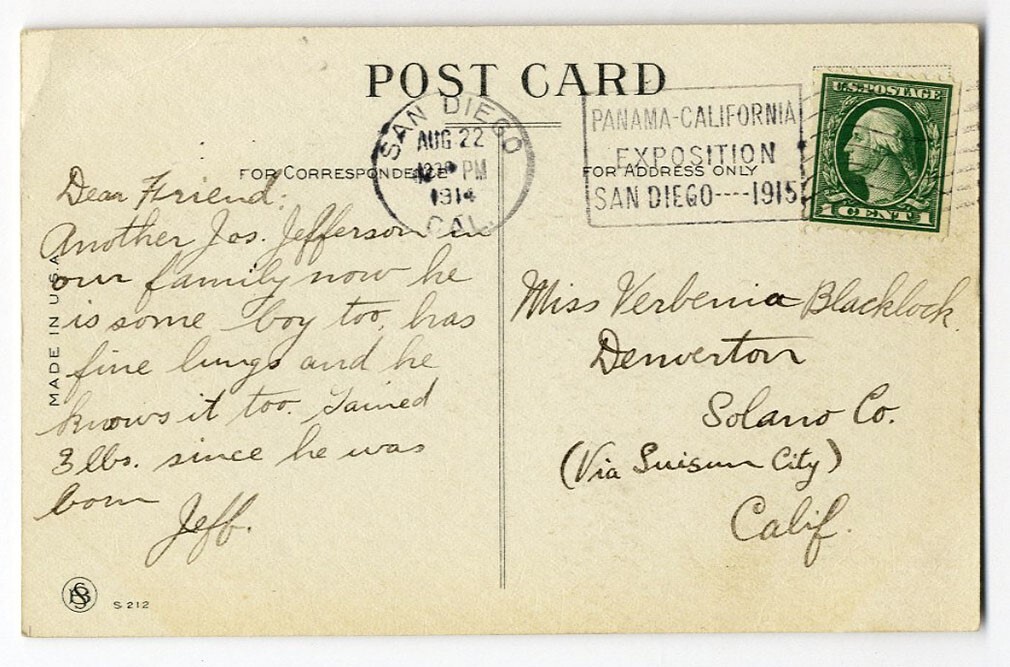 POST CARD
SAN DIEGO
AUG 22
PM
1914
CAL.
PANAMA-CALIFORNIA
EXPOSITION
SAN DIEGO----1915
U.S. POSTAGE
1 CENT 1
FOR CORRESPONDENCE
FOR ADDRESS ONLY
Dear Friend:
Another Jas. Jefferson in
our family now he
is some boy too, has
fine lungs and he
knows it too. Gained
3 lbs. since he was
born
Jeff.
Miss Verbenia Blacklock.
Denverton
Solano Co.
(Via Suisun City)
Calif.
MADE IN U.S.A.
S 212